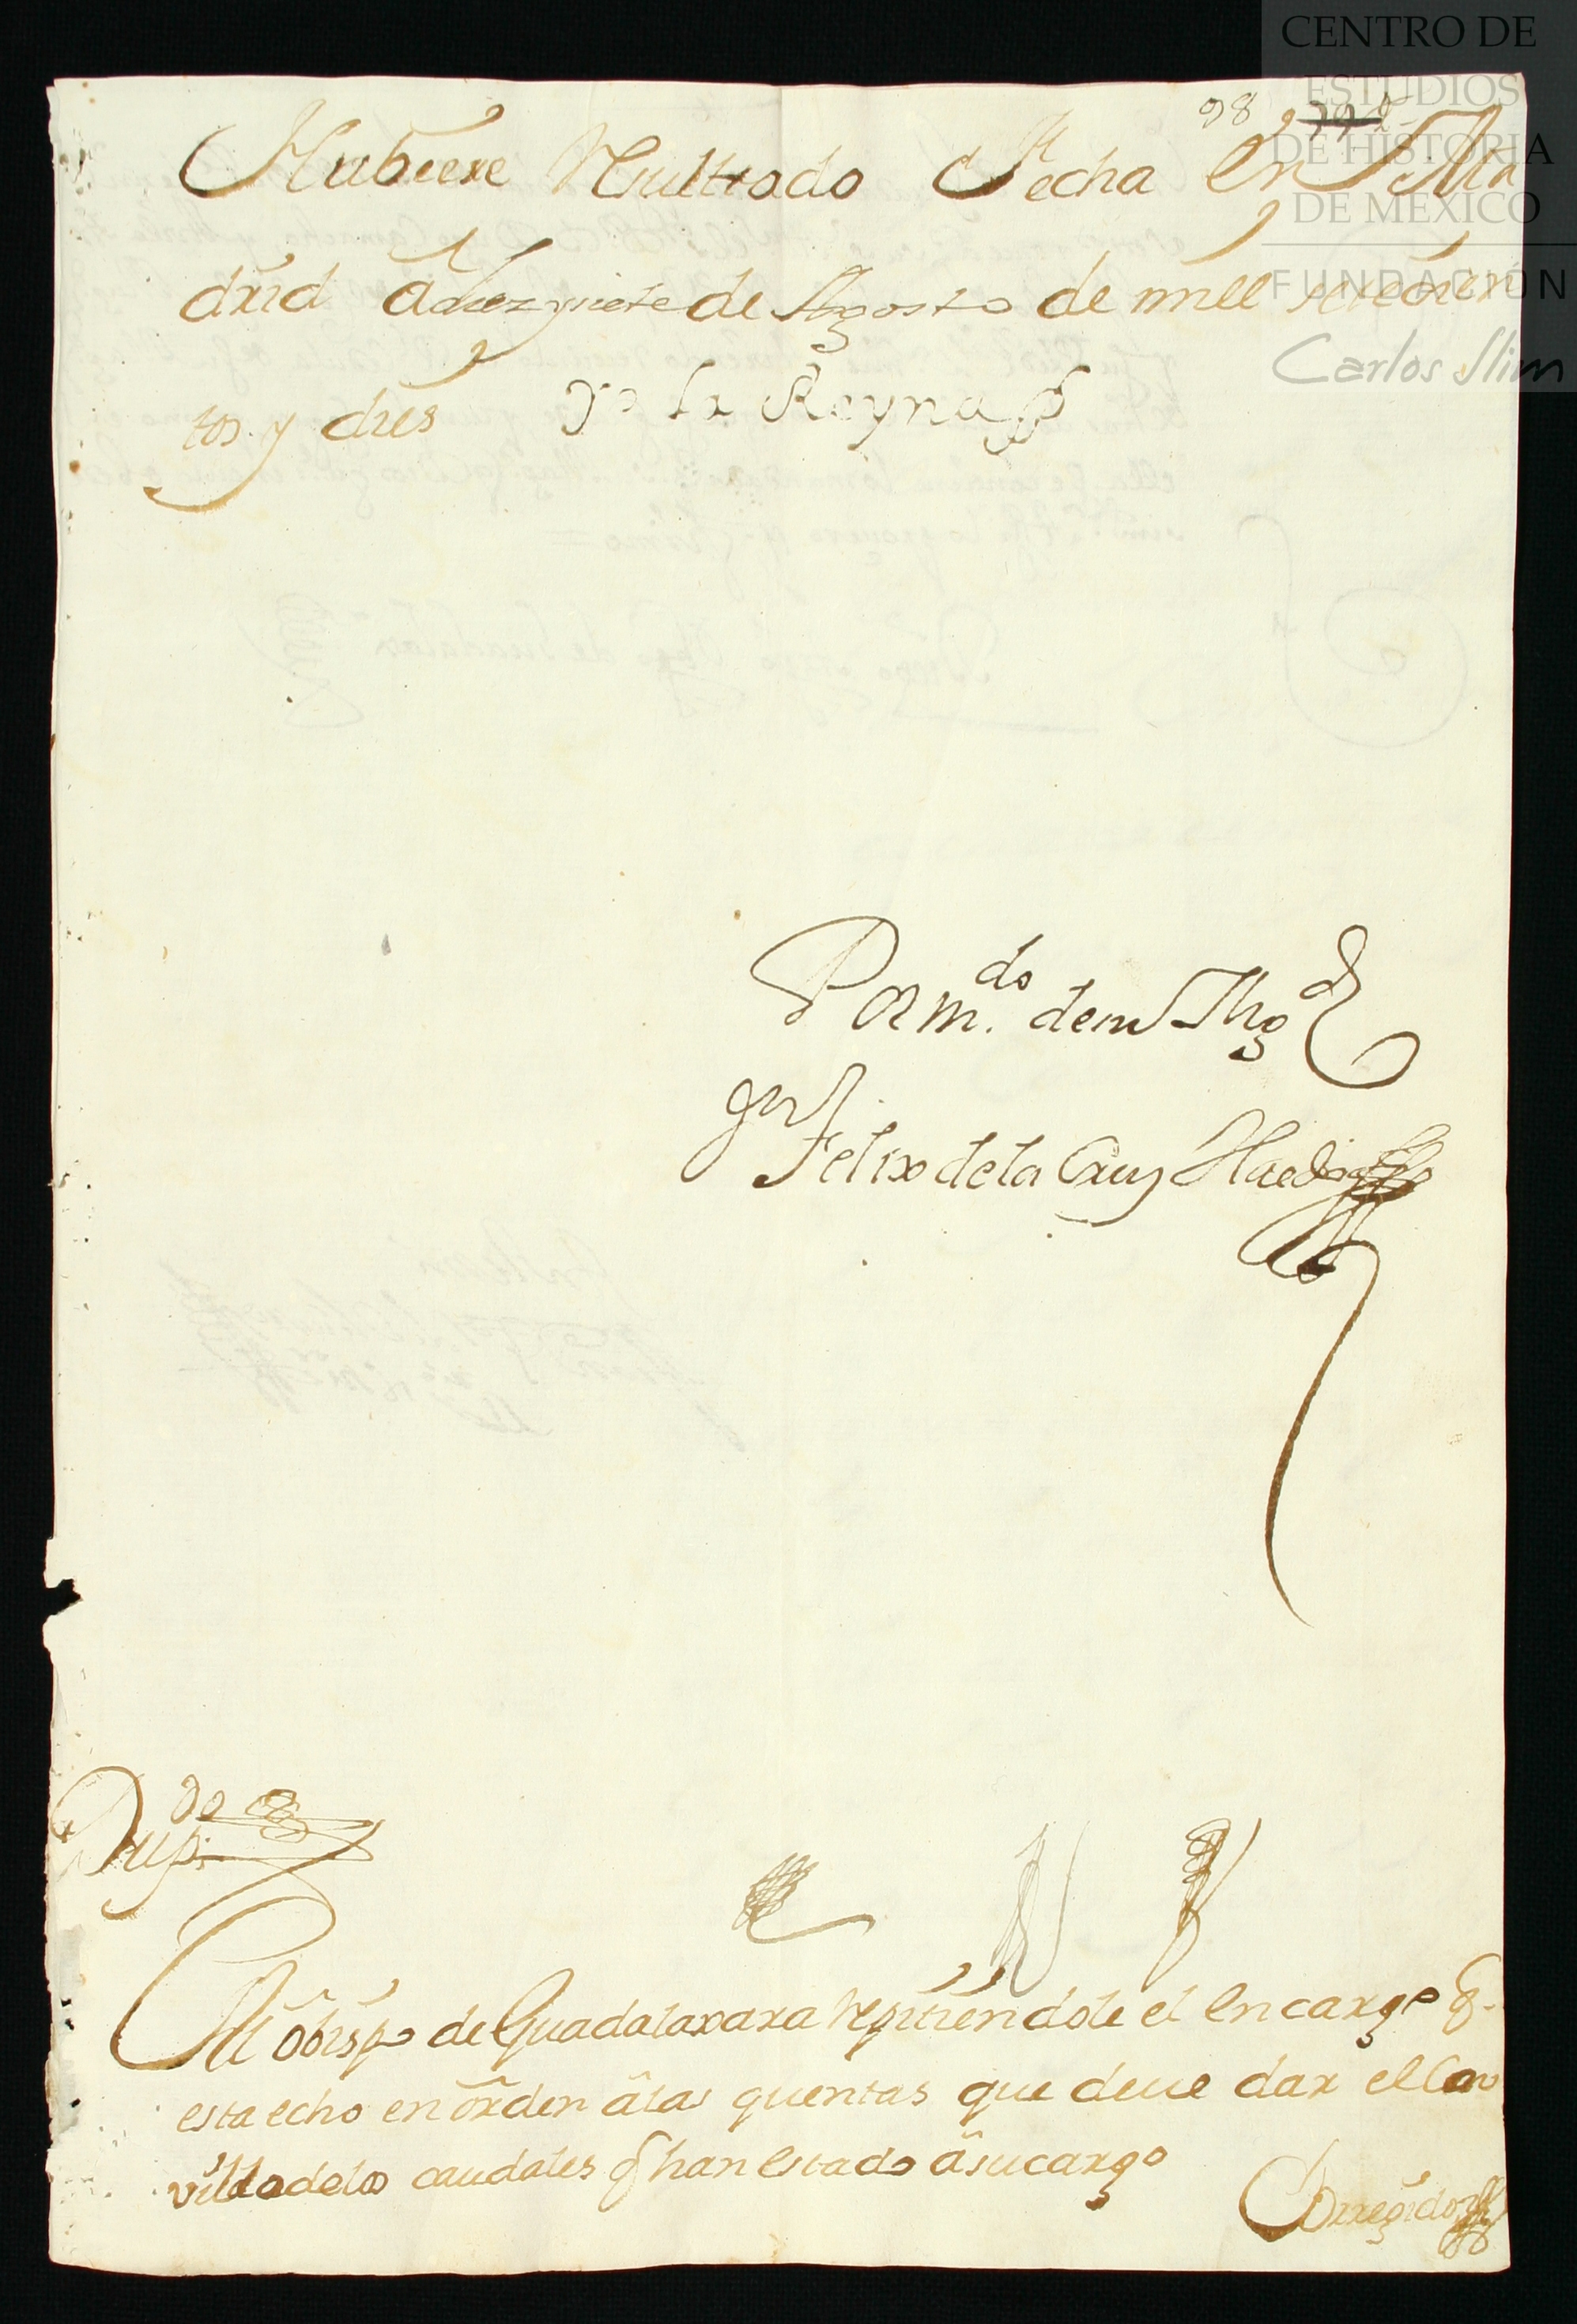 98
Hubiere Resultado fecha En Ma
drid â diez y siete de Agosto de mill setecien
tos. y dies Yo la Reyna
Por m.do de su Mg.d
gn Felix de la Cruz Haedo
Dup.do
Al ôbispo de Guadalaxara repitiendole el encargo q.
esta echo en ôrden âlas quentas que deue dar el Con
de los caudales q han estado âsu cargo
Corregido
CENTRO DE
ESTUDIOS
DE HISTORIA
DE MEXICO
FUNDACIÓN
Carlos Slim